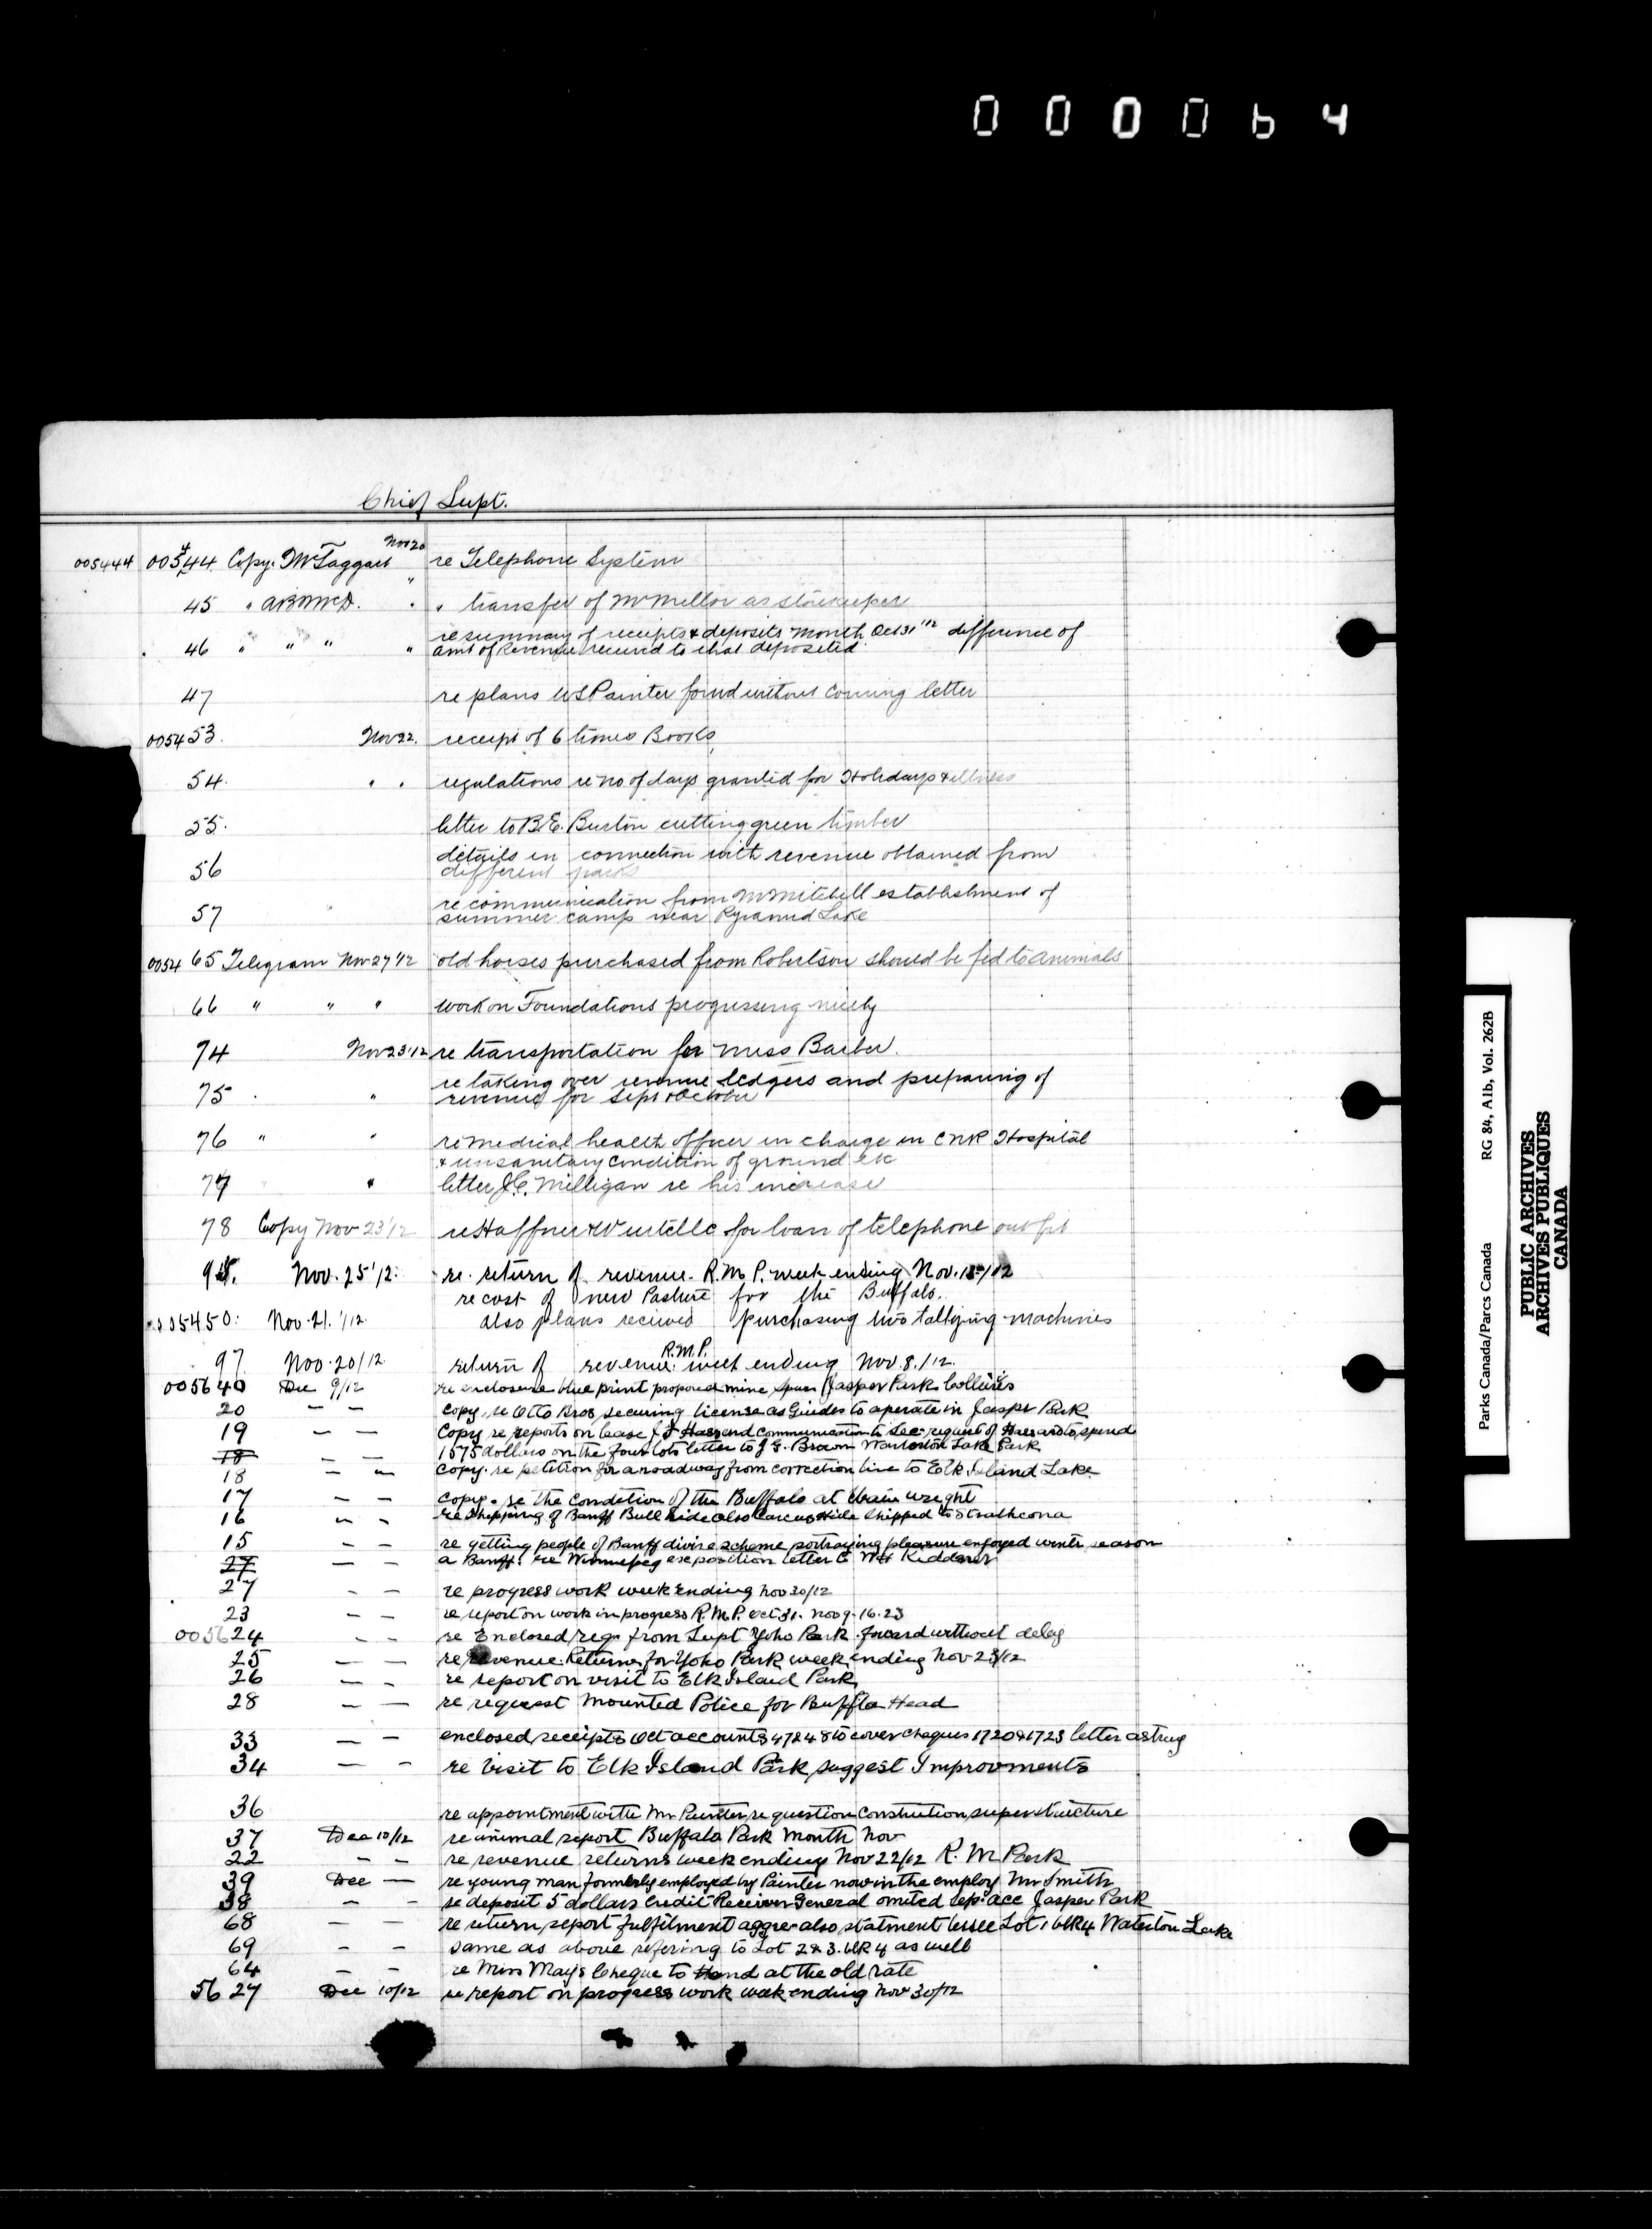 000064
Chief Supt.
005444 005444 Copy. McTaggart Nov 20 re Telephone System
45 " ABMcD. " " transfer of Mr Mellor as storekeeper
46 " " " " re summary of receipts & deposits month Oct 31 '12 difference of
amt of Revenue received to that deposited
47 re plans W S Painter found without coming letter
005453. Nov 22. receipt of 6 times Books
54. " " regulations re no of days granted for Holidays & illness
55. letter to B.E. Burton cutting green timber
56 details in connection with revenue obtained from
different parks
57 re communication from Mr Mitchell establishment of
summer camp near Pyramid Lake
0054 65 Telegram Nov 27 '12 old horses purchased from Robertson should be fed to animals
66 " " " work on Foundations progressing nicely
74 Nov 23 '12 re transportation for Miss Barber.
75 " re taking over revenue ledgers and preparing of
revenue for Sept & October
76 " " re medical health officer in charge in CNR Hospital
& unsanitary condition of ground etc
77 " letter J.C. Milligan re his increase
78 Copy Nov 23 '12 re Haffner & Wurtelle for loan of telephone outfit
Nov. 25 '12. re. return of revenue. R.M.P. week ending Nov. 15/12
re cost of new Pasture for the Buffalo.
005450: Nov. 21. '/12 also plans received purchasing two tallying machines
97 Nov. 20/12 return of revenue. R.M.P. week ending Nov. 8./12.
005640 Dec 9/12 re enclosure blue print proposed mine Jasper Park Collieries
20 — — copy. re Otto Bros securing license as Guides to operate in Jasper Park
19 — — Copy re reports on lease communication to Sec. request of Hazzard to spend
18 — — 1575 dollars on the four lots letter to J G. Brown Waterton Lake Park
18 — — copy. re petition for a roadway from correction line to Elk Island Lake
17 — — copy. re the condition of the Buffalo at Wainwright
16 — — re shipping of Banff Bull hide also carcus Hide shipped to Strathcona
15 — — re getting people of Banff divise scheme portraying pleasure enjoyed winter season
27 — — a Banff. re Winnipeg exeposition letter
27 — — re progress work week Ending Nov 30/12
23 — — re report on work in progress R.M.P. Oct 31. Nov 9. 16. 23
005624 — — re Enclosed regs from Supt Yoho Park. forward without delay
25 — — re Revenue Returns for Yoho Park week ending Nov 23/12
26 — — re report on visit to Elk Island Park
28 — — re request Mounted Police for Buffla Head
33 — — enclosed receipts Oct accounts 47 & 48 to cover cheques 1720 & 1723 letter astray
34 — — re Visit to Elk Island Park suggest Improvments
36 re appointment with Mr Painter re question Constrution superstructure
37 Dec 10/12 re animal report Buffalo Park Month Nov
22 — — re revenue returns week ending Nov 22/12 R. M Park
39 Dec — re young man formberly employed by Painter now in the employ Mr Smith
38 — — re deposit 5 dollars Credit Receiver General omited Sep. acc Jasper Park
68 — — re return report fulfilment aggre also statment lessee Lot 1 blk 4 Waterton Lake
69 — — same as above refering to Lot 2 & 3. blk 4 as well
64 — — re Miss Mays Cheque to Hand at the old rate
56 27 Dec 10/12 re report on progress work week ending Nov 30/12
Parks Canada/Parcs Canada RG 84, A1b, Vol. 262B
PUBLIC ARCHIVES
ARCHIVES PUBLIQUES
CANADA